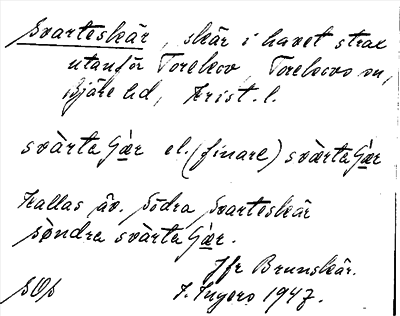 Svarteskär, skär i havet strax
utanför Torekov, Torekovs sn,
Bjäre hd, Krist. l.
svàrtaʃær el. (finare) svàrtaʃær
Kallas äv. Södra Svarteskär
søndra svàrtaʃær.
Jfr Brunskär.
I. Ingers 1947.